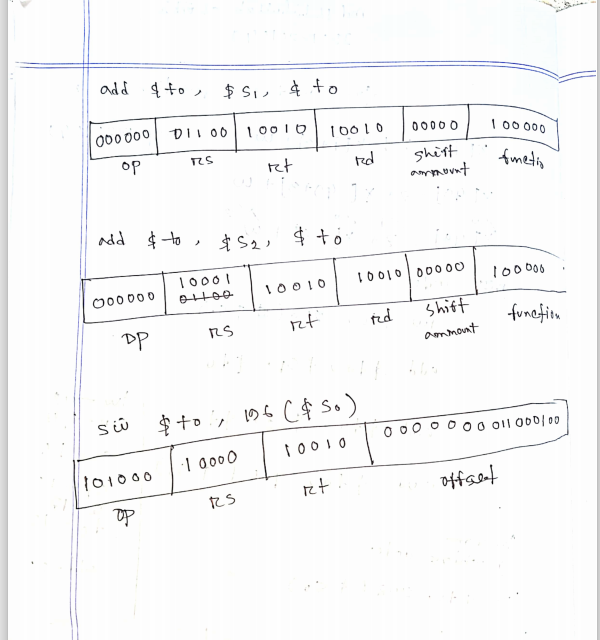 add $t0, $s1, $t0
000000 01100 10010 10010 00000 100000
op rs rt rd shift ammount functio
add $t0, $s2, $t0
000000 10001 01100 10010 10010 00000 100000
op rs rt rd shift ammount function
sw $t0, 196($s0)
101000 10000 10010 0000000011000100
op rs rt offset